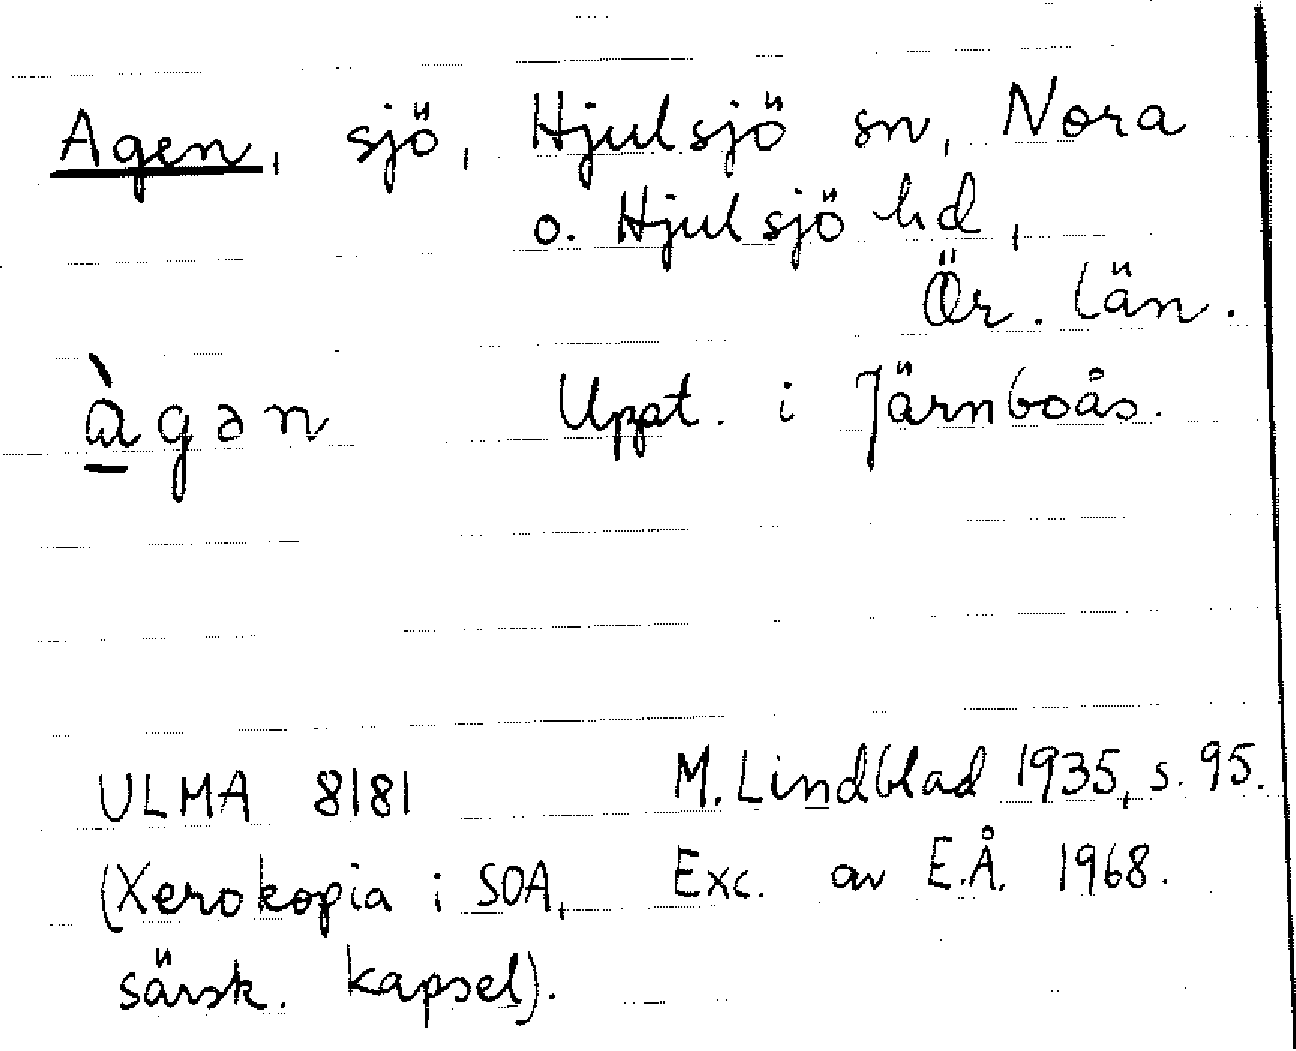 Agen, sjö, Hjulsjö sn, Nora
o. Hjulsjö hd,
Ör. län.
à̱gən Uppt. i Järnboås.
ULMA 8181 M. Lindblad 1935, s. 95.
(Xerokopia i SOA, Exc. av E.Å. 1968.
särsk. kapsel).